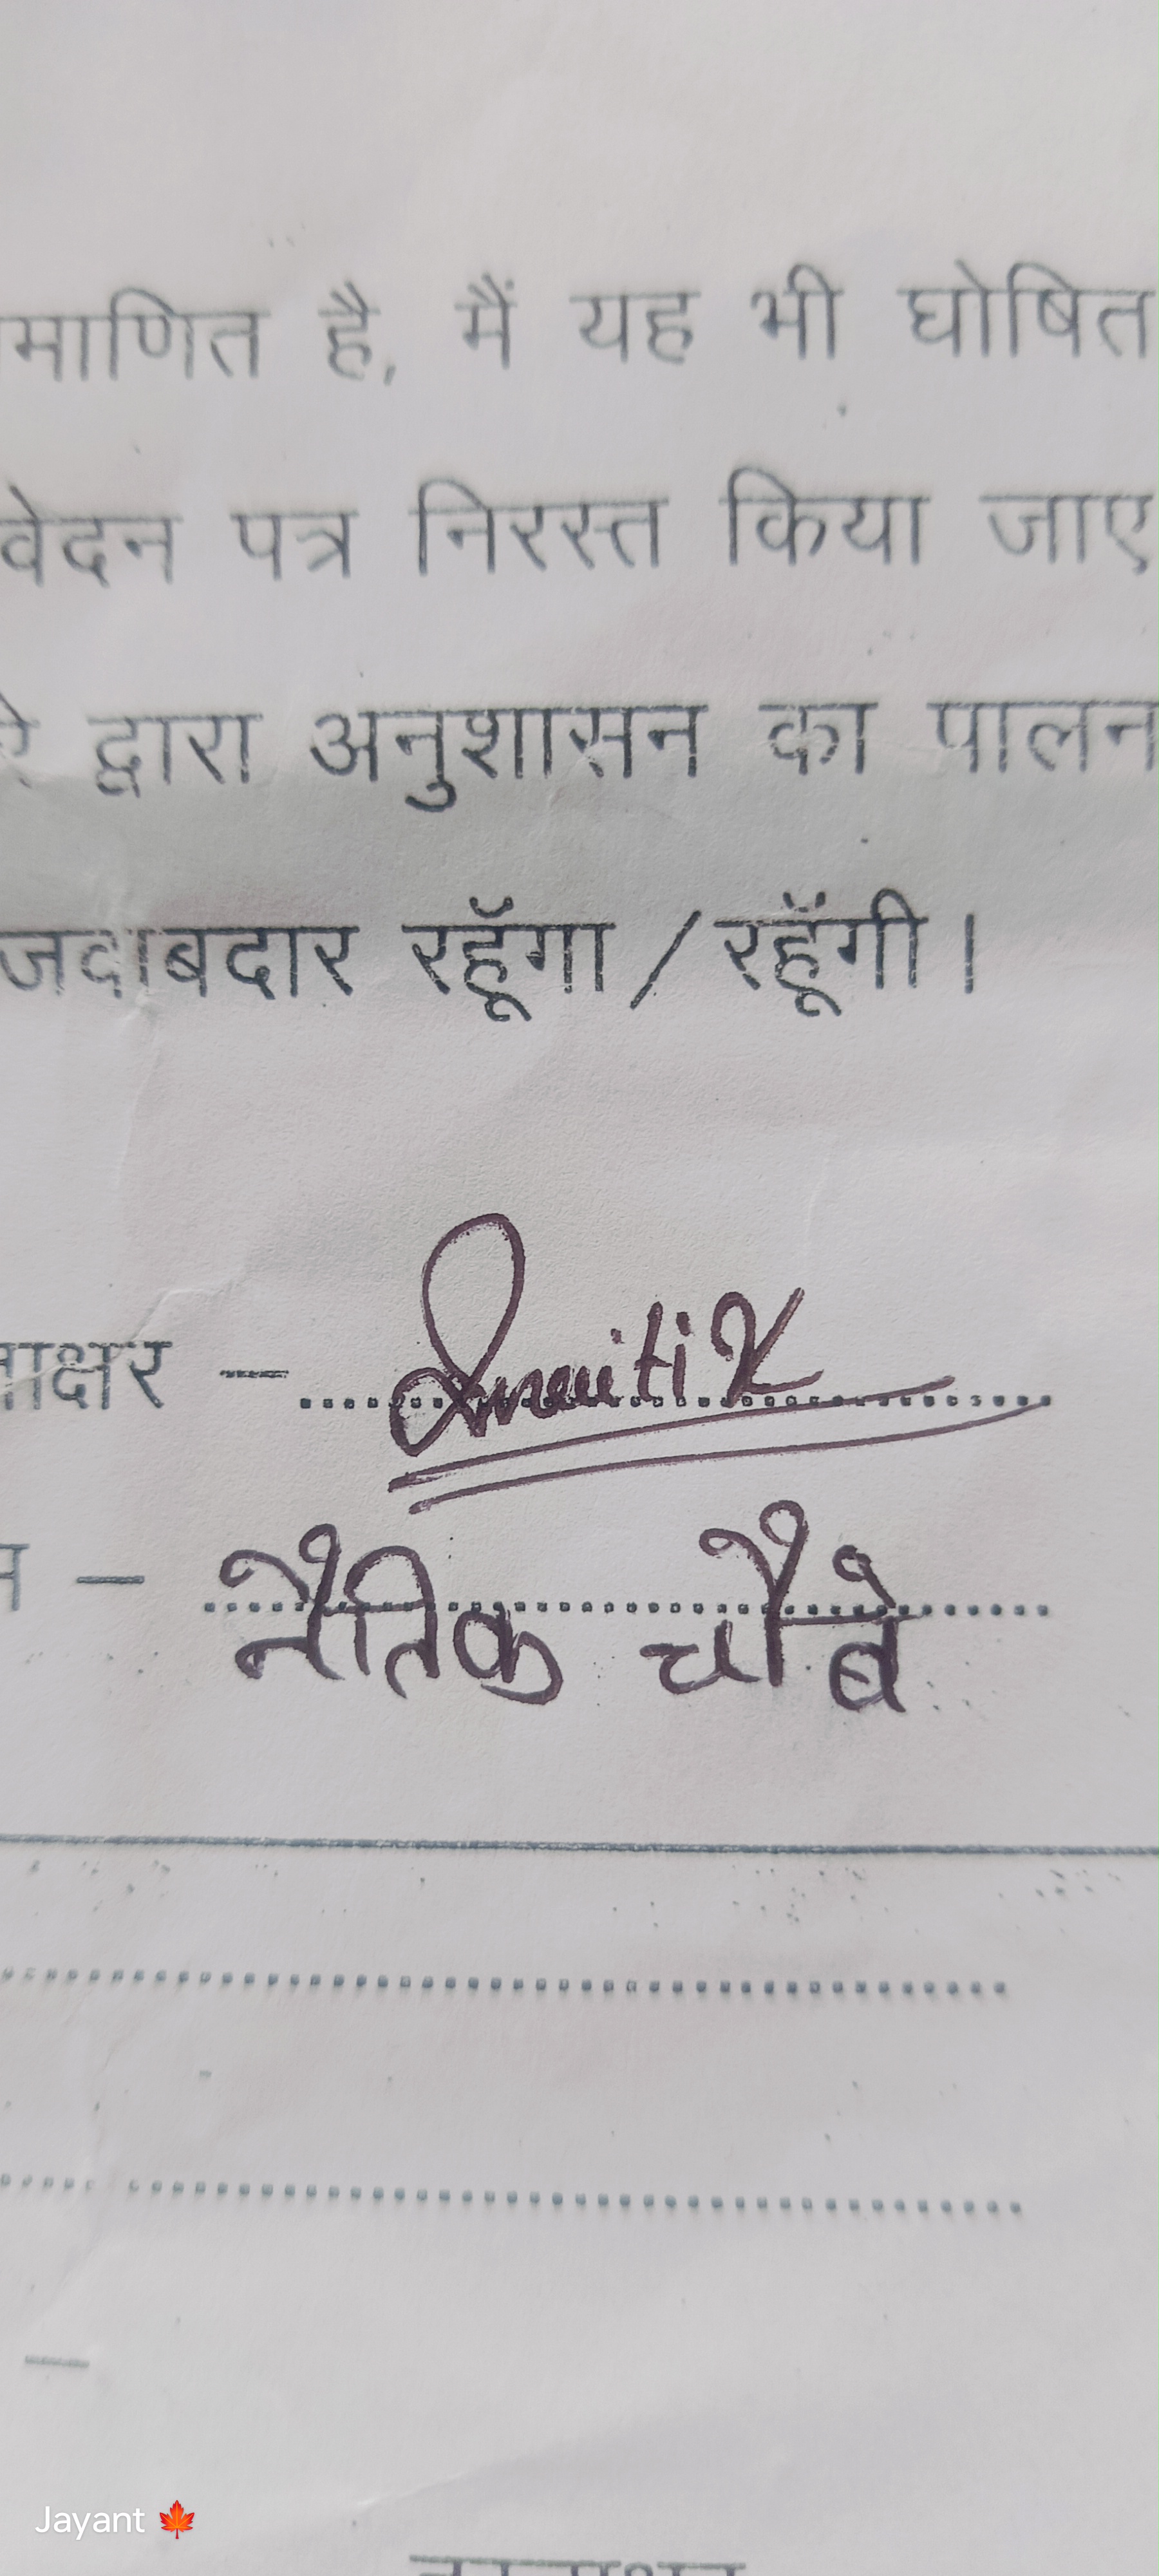 माणित है, मैं यह भी घोषित
वेदन पत्र निरस्त किया जाए
द्वारा अनुशासन का पालन
जवाबदार रहूँगा / रहूँगी।
ाक्षर –
– नैतिक चौबे
–
Jayant 🍁